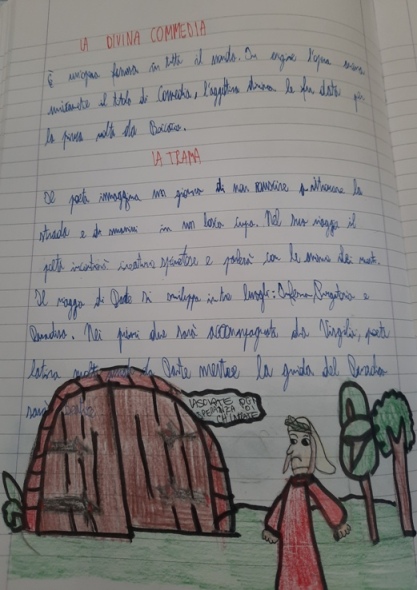 LA DIVINA COMMEDIA
È un'opera famosa in tutto il mondo. In origine l'opera aveva
unicamente il titolo di Comedia, l'aggettivo divina le fu dato per
la prima volta da Boccaccio.
LA TRAMA
Il poeta immagina un giorno di non riuscire a ritrovare la
strada e di smarrirsi in un bosco cupo. Nel suo viaggio il
poeta incontrerà creature e parlerà con le anime dei morti.
Il viaggio di Dante si sviluppa in tre luoghi: Inferno, Purgatorio e
Paradiso. Nei primi due sarà accompagnato da Virgilio, poeta
latino molto da Dante mentre la guida del Paradiso
sarà
LASCIATE OGNI
SPERANZA O VOI
CH'INTRATE